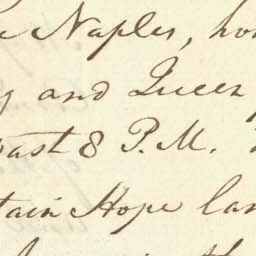 Naples, hon
and Queen
past 8 P.M.
tain Hope lan